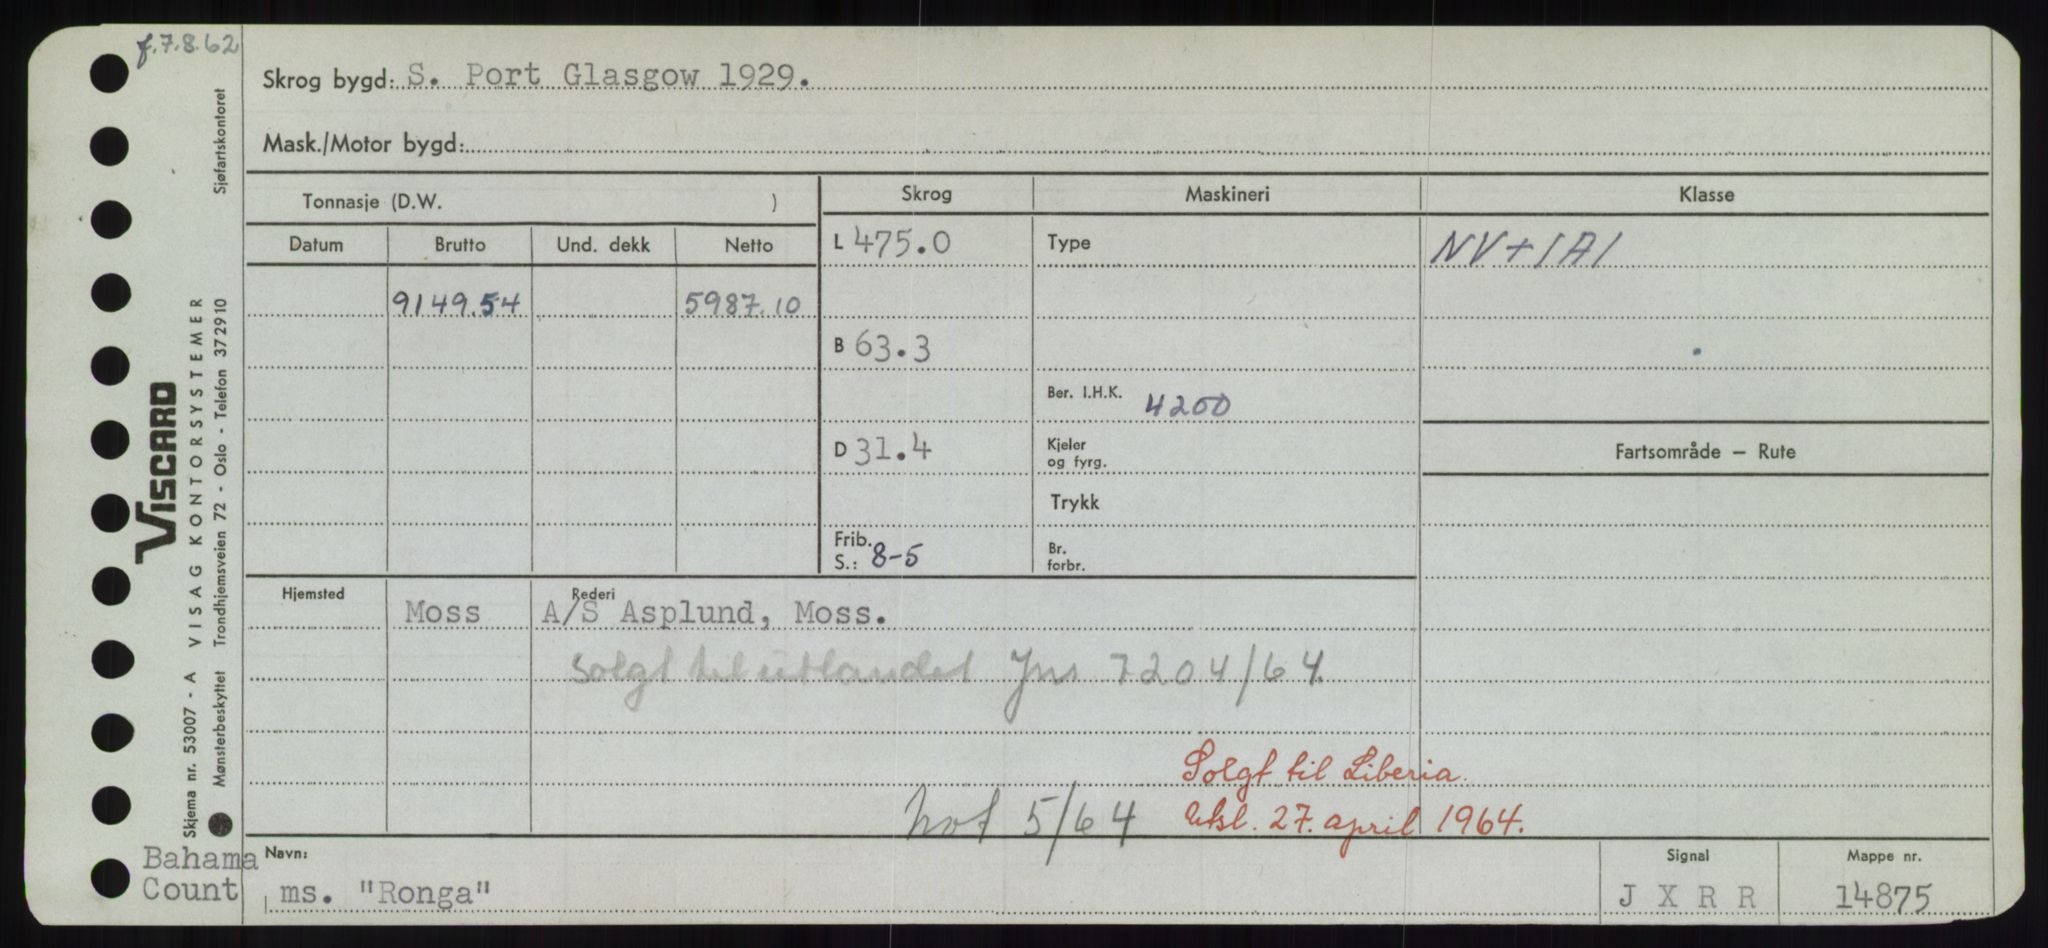 f. 7.8.62
Skrog bygd: S. Port Glasgow 1929.
Mask./Motor bygd:
Tonnasje (D.W. )
Skrog
Maskineri
Klasse
Datum
Brutto
Und. dekk
Netto
L 475.0
Type
NV+1A1
9149.54
5987.10
B 63.3
Ber. I.H.K. 4200
D 31.4
Kjeler
og fyrg.
Fartsområde — Rute
Trykk
Frib.
S.: 8-5
Br.
forbr.
Hjemsted
Rederi
Moss
A/S Asplund, Moss.
Solgt til utlandet Jns 7204/64.
Solgt til Liberia.
not 5/64
Utsl. 27. april 1964.
Bahama
Count
Navn:
ms. "Ronga"
Signal
J X R R
Mappe nr.
14875
Sjøfartskontoret
VISCARD
VISAG KONTORSYSTEMER
Trondhjemsveien 72 - Oslo - Telefon 372910
Skjema nr. 53007 - A
Mønsterbeskyttet